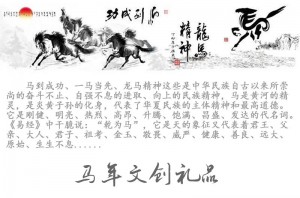 功成到馬
龍馬精神
馬到成功、一马当先、龙马精神这些是中华民族自古以来所崇
尚的奋斗不止、自强不息的进取、向上的民族精神，马是黄河的精
灵，是炎黄子孙的化身，代表了华夏民族的主体精神和最高道德。
它是刚健、明亮、热烈、高昂、升腾、饱满、昌盛、发达的代名词。
《易经》中干脆说：“乾为马”，它是天的象征又代表着君王、父
亲、大人、君子、祖考、金玉、敬畏、威严、健康、善良、远大、
原始、生生不息......
马年文创礼品